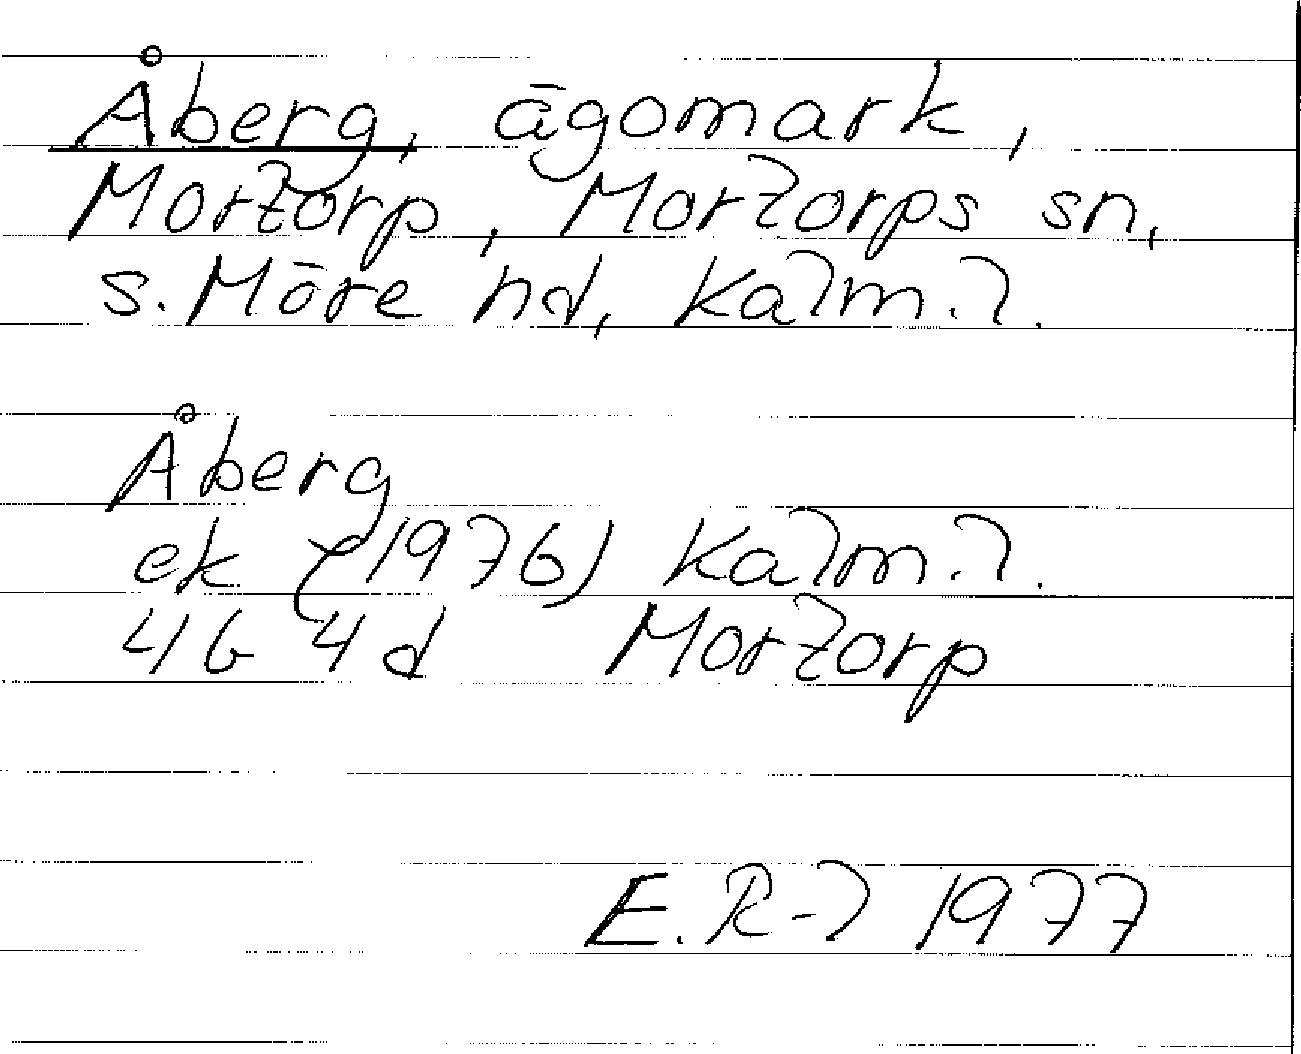 Åberg, ägomark,
Mortorp, Mortorps sn,
S. Möre hd, Kalm. l.
Åberg
ek (1976) Kalm. l.
4G 4d Mortorp
E. R-l 1977